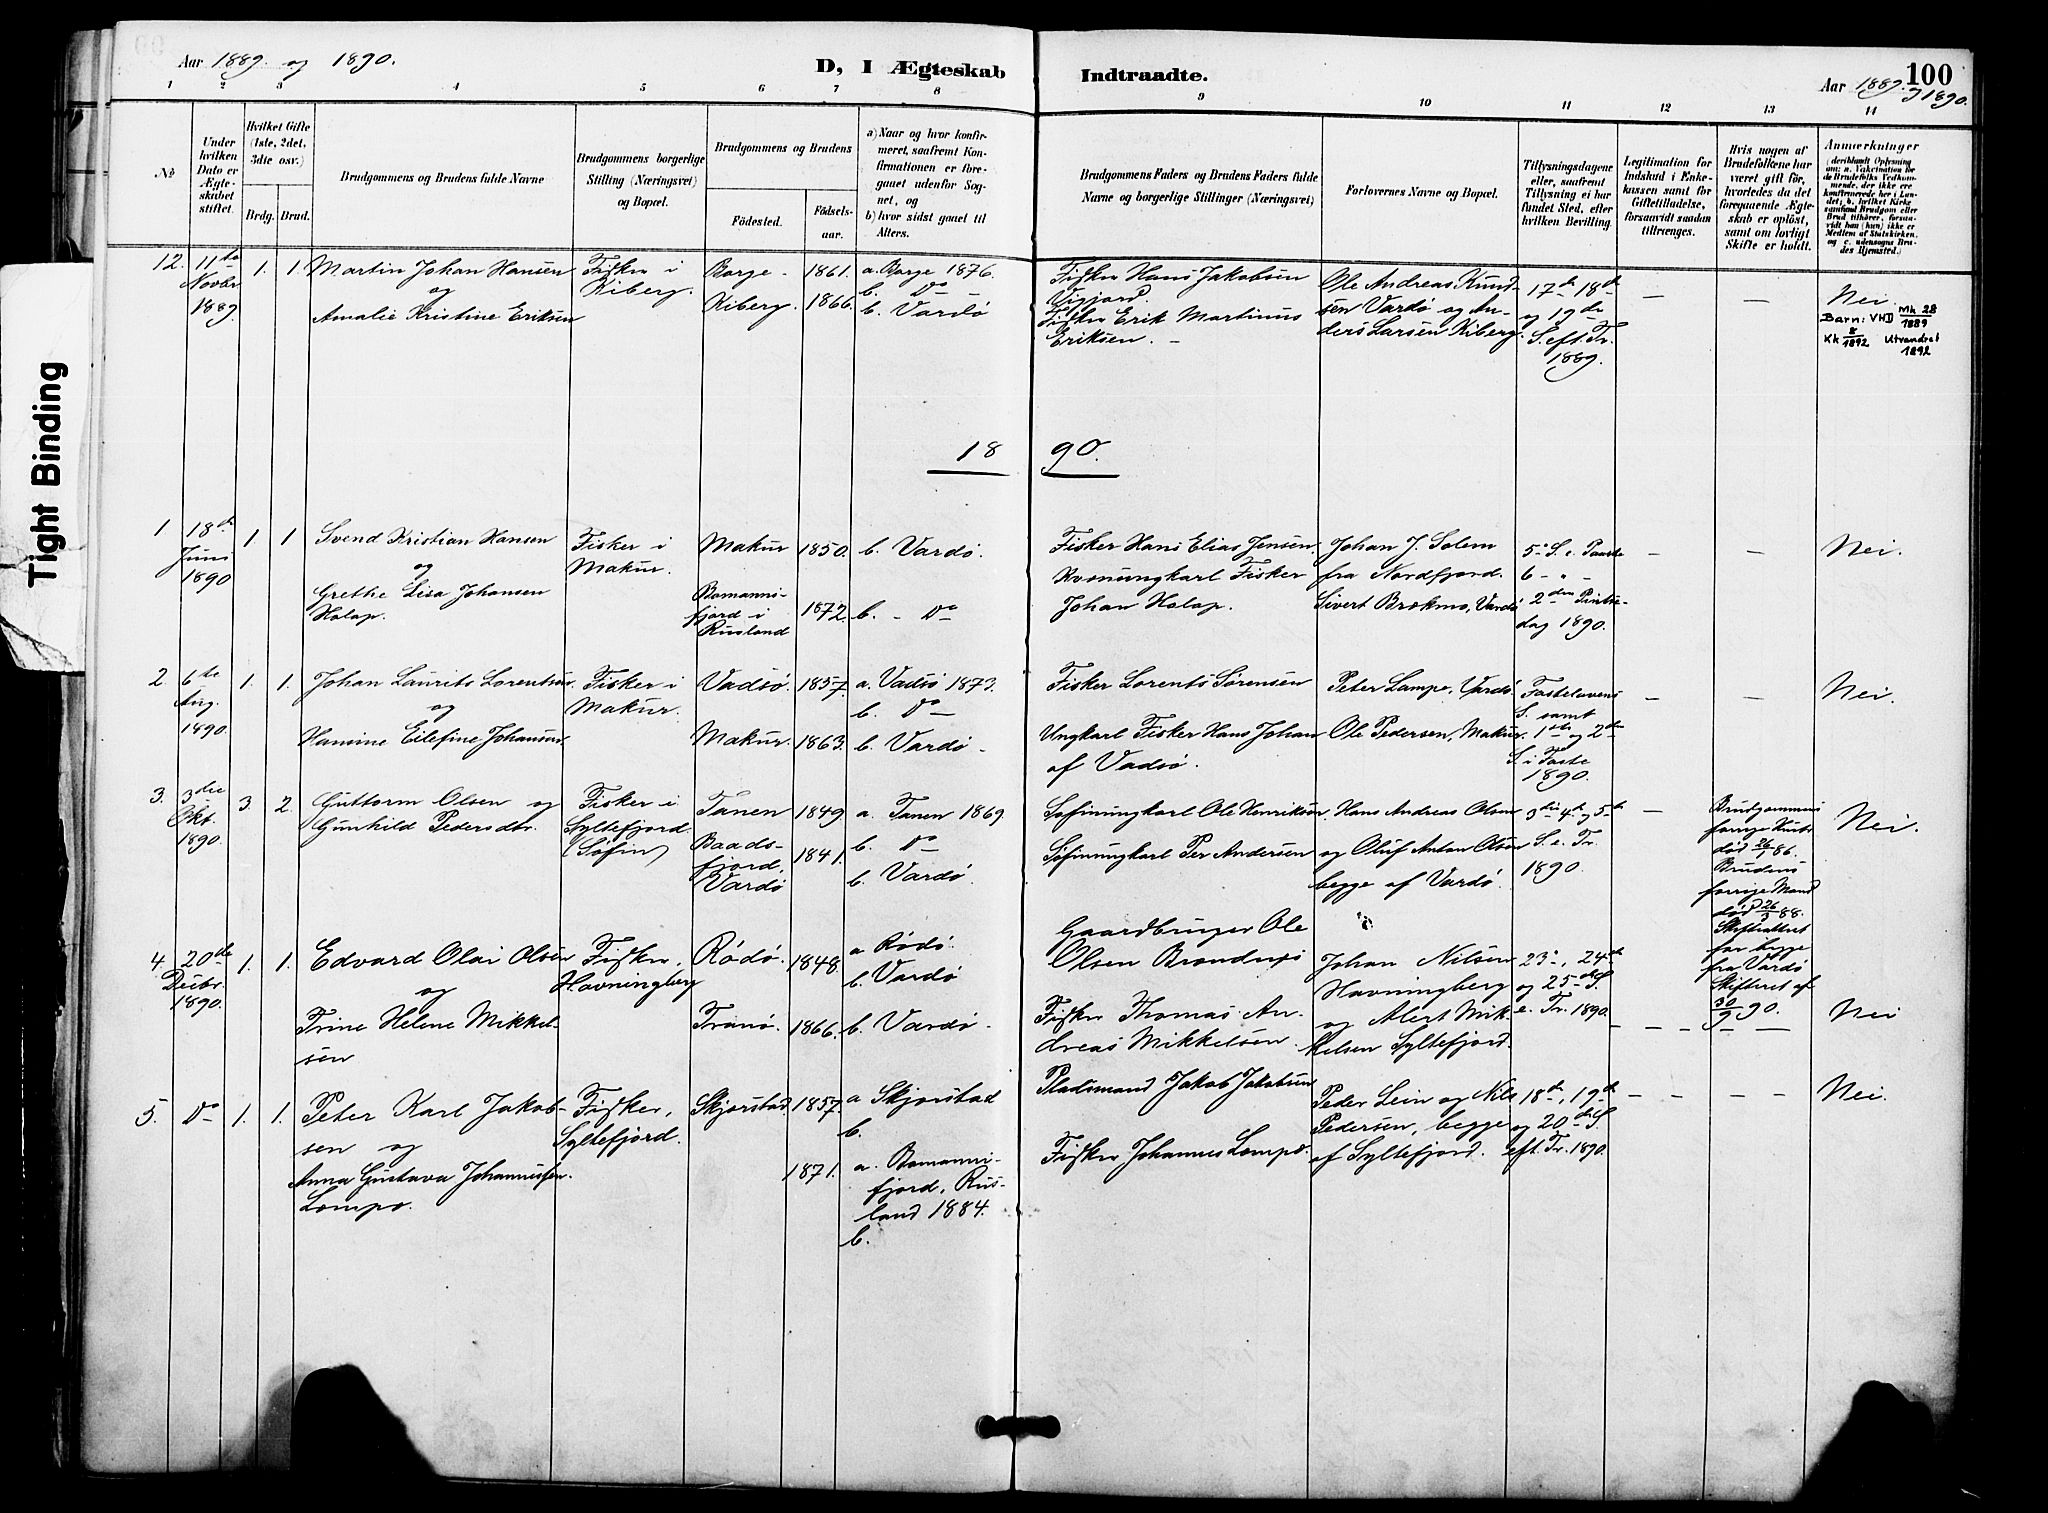 Tight Binding
Aar 1889. og 1890.
D, I Ægteskab
Indtraadte.
100
Aar 1889. og 1890.
1 2 3 4 5 6 7 8 9 10 11 12 13 14
No
Under hvilken Dato er Ægteskabet stiftet.
Hvilket Gifte (1ste, 2det, 3die osv.)
Brdg. Brud.
Brudgommens og Brudens fulde Navne
Brudgommens borgerlige Stilling (Næringsvei) og Bopæl.
Brudgommens og Brudens
Fødested.
Fødselsaar.
a) Naar og hvor konfirmeret, saafremt Konfirmationen er foregaaet udenfor Sognet, og
b) hvor sidst gaaet til Alters.
Brudgommens Faders og Brudens Faders fulde Navne og borgerlige Stillinger (Næringsvei)
Forlovernes Navne og Bopæl.
Tillysningsdagene eller, saafremt Tillysning ei har fundet Sted, efter hvilken Bevilling.
Legitimation for Indskud i Enkekassen samt for Giftetilladelse, forsaavidt saadan tiltrænges.
Hvis nogen af Brudefolkene har været gift før, hvorledes da det foregaaende Ægteskab er opløst, samt om lovligt Skifte er holdt.
Anmærkninger
(deriblandt Oplysning om: a. Vakcination for de Brudefolks Vedkommende, der ikke ere konfirmerede her i Landet; b. hvilket Kirkesamfund Brudgom eller Brud tilhører, forsaavidt han (hun) ikke er Medlem af Statskirken, og c. udensogns Brudes Hjemsted.)
12. 11te Novbr 1889. 1. 1. Martin Johan Hansen
og
Amalie Kristine Eriksen
Fisker i Kiberg.
Borge - 1861. a. Borge 1876.
b. Do
Kiberg. 1866. b. Vardø
Fisker Hans Jakobsen
Vigfjord
Fisker Erik Martinus
Eriksen. -
Ole Andreas Knudsen Vardø og Anders Larsen Kiberg.
17de 18de og 19de S. eft. Tr. 1889.
— —
Nei.
Barn: VHD Mk 28/1889
Kk 8/1892 Utvandret 1892
18 90.
1 18de Juni 1890 1 1 Svend Kristian Hansen
og
Grethe Lisa Johansen
Halap.
Fisker i Makur.
Makur 1850. b. Vardø.
Bomannsfjord i Rusland 1872. b. - Do
Fisker Hans Elias Jensen.
Kvænungkarl Fisker
Johan Halap.
Johan J. Solem
fra Nordfjord.
Sivert Brækmo, Vardø
5te S. e. Paaske
6 - " -
2den Pintsedag 1890.
— —
Nei.
2. 6te Aug. 1890. 1. 1. Johan Laurits Lorentsen
og
Hansine Eilefine Johansen.
Fisker i Makur.
Vadsø. 1857. a. Vadsø 1873.
b. Do
Makur. 1863. b. Vardø -
Fisker Lorents Sørensen
Ungkarl Fisker Hans Johan
af Vadsø.
Peter Lampe, Vardø.
Ole Pedersen, Makur.
Fastelavens S. samt 1ste og 2den S. i Faste 1890.
— —
Nei.
3. 3die Okt. 1890. 3. 2. Guttorm Olsen og
Gunhild Pedersdtr.
Fisker i Syltefjord. (Søfin)
Tanen 1849 a. Tanen 1869
b. Do
Baadsfjord, Vardø 1841. b. Vardø.
Søfinungkarl Ole Henriksen.
Søfinungkarl Per Andersen
Hans Andreas Olsen
og Oluf Anton Olsen
begge af Vardø.
3die 4de og 5te S. e. Tr. 1890.
—
Brudgommens forrige Hustru død 26/1 86. Brudens forrige Mand død 26/3 88. Skifteattest for begge fra Vardø Skifteret af 30/9 90.
Nei.
4. 20de Decbr. 1890. 1. 1. Edvard Olai Olsen
og
Trine Helene Mikkelsen
Fisker, Havningberg
Rødø. 1848. a Rødø.
b. Vardø
Tranø. 1866. b. Vardø -
Gaardbruger Ole
Olsen
Fisker Thomas Andreas Mikkelsen.
Johan Nilsen
Havningberg
og Alert Mikkelsen Syltefjord.
23de, 24de og 25de S. e. Tr. 1890.
— — — —
Nei
5. Do 1. 1. Peter Karl Jakobsen og
Anna Gustava Johannessen.
Lompo.
Fisker, Syltefjord.
Skjerstad 1857. a Skjerstad
b.
1871. a. Bomannsfjord, Rusland 1884.
b.
Pladsmand Jakob Jakobsen
Fisker Johannes Lompo.
Peder Lein og Nils
Pedersen, begge
af Syltefjord.
18de, 19de og 20de S. eft. Tr. 1890.
— — — —
Nei.